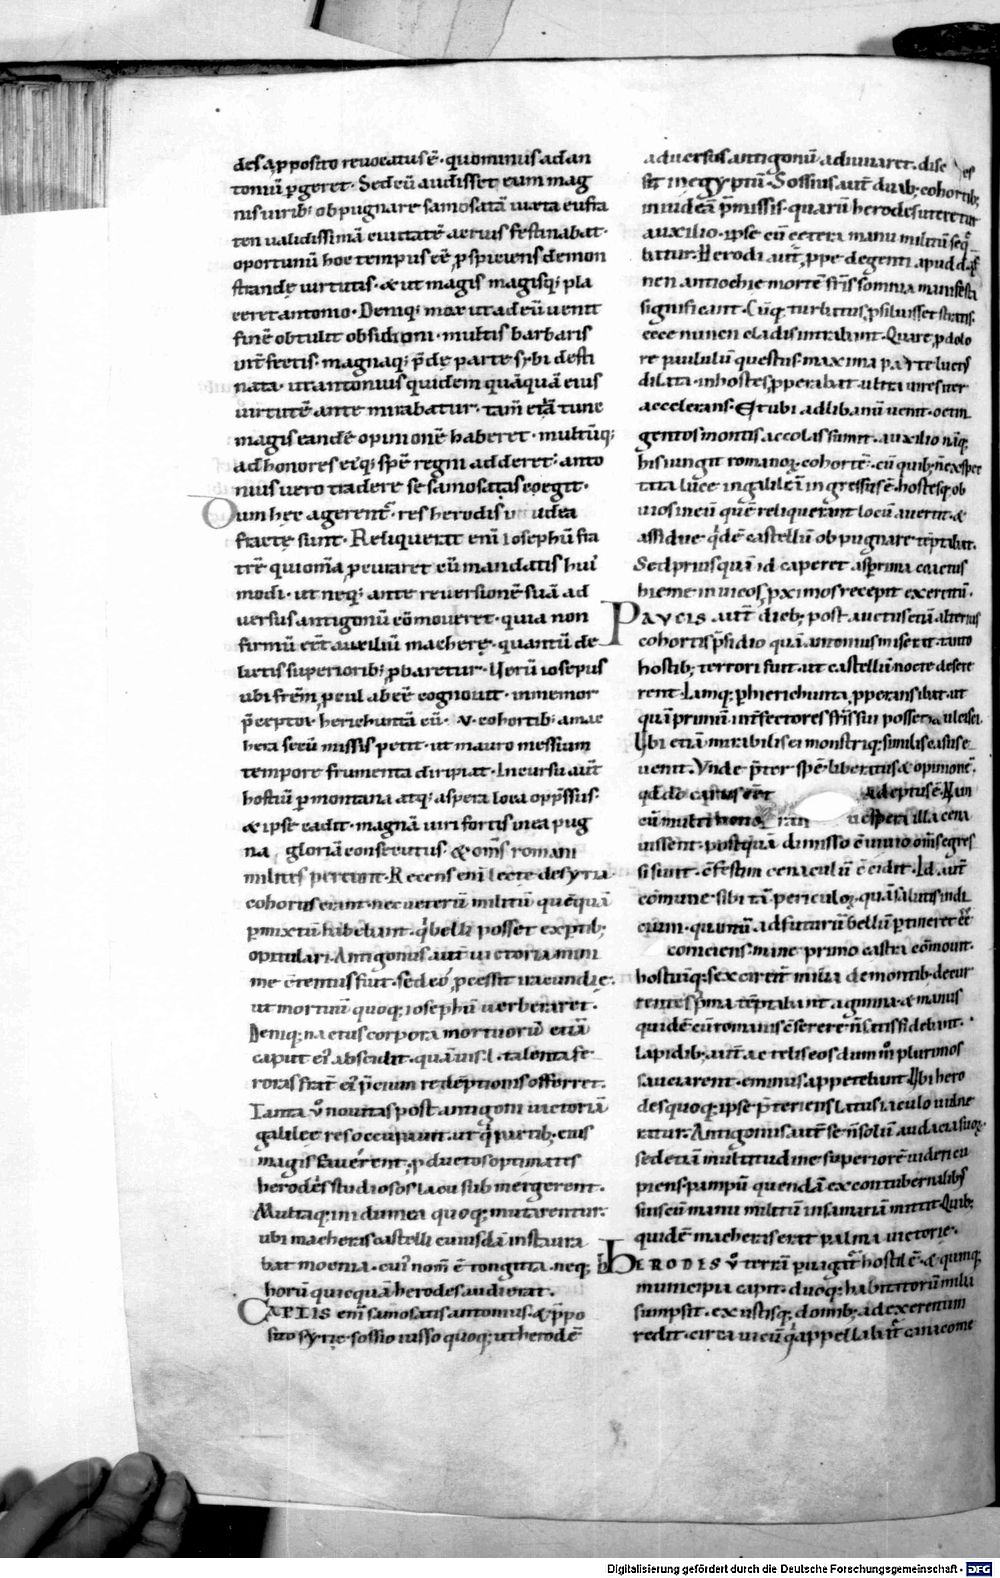 des apposito reuocatus ē. quominus ad an
toniū ꝑgeret. Sed eū audisset eum mag
nis uirib; obpugnare samosatā iuxta eufra
ten ualidissimā ciuitatē acrius festinabat.
oportunū hoc tempus eē ꝑspiciens demon
strandę uirtutis. & ut magis magisq; pla
ceret antonio. Deniq; mox ut ad eū uenit
finē obtulit obsidioni. multis barbaris
int̄fectis. magnaq; p̄dę parte sybi desti
nata. ut antonius quidem quāquā eius
uirtutē ante mirabatur. tam̄ etiā tunc
magis eandē opinionē haberet. multūq;
ad honores ei⁹q; spē regni adderet. anto
nius uero tradere se samosatas coegit.
Dum hęc agerent̄. res herodis in iudea
fractę sunt. Reliquerat enī iosephū fra
trē qui om̄ia ꝓcuraret eū mandatis hui⁹
modi. ut neq; ante reuersionē suā ad
uersus antigonū cōmoueret. quia non
firmū eēt auxiliū macherę. quantū de
lictis superiorib; ꝓbaretur. Verū iosepus
ubi frēm ꝓcul abeē cognouit. inmemor
p̄ceptor. hierichuntā cū .v. cohortib; a mac
hera secū missis petit. ut mauro messium
tempore frumenta diripiat. Incursu aūt
hostiū ꝑ montana atq; aspera loca opp̄ssus.
& ipse cadit. magnā uiri fortis in ea pug
na gloriā consecutus. & om̄s romani
milites pereunt. Recens enī lectę de syria
cohortes erant. nec ueterū militū quēquā
ꝑmixtū habebant. q̄ belli posset exꝑtib;
opitulari. Antigonus aūt uictoria mini
me c̄tentus fuit. sed eo ꝓcessit iracundię.
ut mortuū quoq; iosephū uerberaret.
Deniq; nactus corpora mortuorū etiā
caput ei⁹ abscidit. quāuis .l. talenta fe
roras frat̄ ei⁹ p̄cium redēptionis offerret.
Tanta v̊ nouitas post antigoni uictoriā
galileę res occupauit. ut q̄ partib; eius
magis fauerent. ꝓductos optimates
herodes studiosos lacu submergerent.
Multaq; in idumea quoq; mutarentur.
ubi macheras castelli cuiusdā instaura
bat moenia. cui⁹ nom̄ ē tongitta. neq;
horū quicquā herodes audierat.
CAPTIS enī samosatis antonius. & p̄po
sito syrię sossio iusso quoq; ut herodē
aduersus antigonū adiuuaret. disces
sit in egyptū. Sossius aūt duab; cohortib;
in iudeā p̄missis. quarū herodes uteretur
auxilio. ipse cū cetera manu militū seq̄
batur. Herodi aūt ꝓpe degenti apud daf
nen antiochię mortē fr̄is somnia manifesta
significant. Cūq; turbatus ꝓsiluisset stratis.
ecce nuncii cladis intrabant. Quare ꝓ dolo
re paululū questus. maxima parte luctus
dilata. in hostes ꝓperabat. ultra uires iter
accelerans. Et ubi ad libanū uenit. octin
gentos montis accolas sumit. auxilio nāq;
his iungit romanor. cohortē. cū quib; n̄ exspec
tata luce in galileā ingressus ē. hostesq; ob
uios in eū quē reliquerant locū auertit. &
assidue q̄dē castellū obpugnare tēptabat.
Sed prius quā id caperet asperima coactus
hieme in uicos ꝓximos recepit exercitū.
PAVCIS aūt dieb; post auctus etiā alterius
cohortis p̄sidio quā antonius miserat. tanto
hostib; terrori fuit. ut castellū nocte desere
rent. Iamq; ꝑ hierichunta ꝓperans ibat. ut
quā primū int̄fectores fr̄is sui posset ulcisci.
Ubi etiā mirabilis ei monstriq; similis casus e
uenit. Vnde p̄ter spē liberatus & opinionē.
adeptus ē. Nam
cū multi uespera illa cena
uissent. postquā dimisso c̄uiuio om̄s egres
si sunt. c̄festim cenaculū c̄cidit. Id aūt
cōmune sibi tā periculor. quā salutis indi
cium. quantū ad futurū bellū ꝑtineret eēt
coniciens. mane primo castra cōmouit.
hostiūq; sex circit̄ milia de montib; decur
rentes prima tēptabant agmina. & manus
quidē cū romanis c̄serere n̄ satis fidebant.
Lapidib; aūt ac telis eos dum plurimos
sauciarent. eminus appetebant. Ubi hero
des quoq; ipse p̄teriens latus iaculo uulne
ratur. Antigonus aūt se n̄ solū audacia suor.
sed etiā multitudine superiorē uideri cu
piens. pampū quendā ex contubernalibs
suis cū manu militū in samariā mittit. Quib;
quidē macheras erat palma uictorię.
HERODES v̊ terrā ꝑuagat̄ hostilē. & quinq;
municipia capit. duoq; habitatorū milia
sumpsit. exustisq; domib; ad exercitum
redit. circa uicū q̄ appellabat̄ canacome
Digitalisierung gefördert durch die Deutsche Forschungsgemeinschaft - DFG